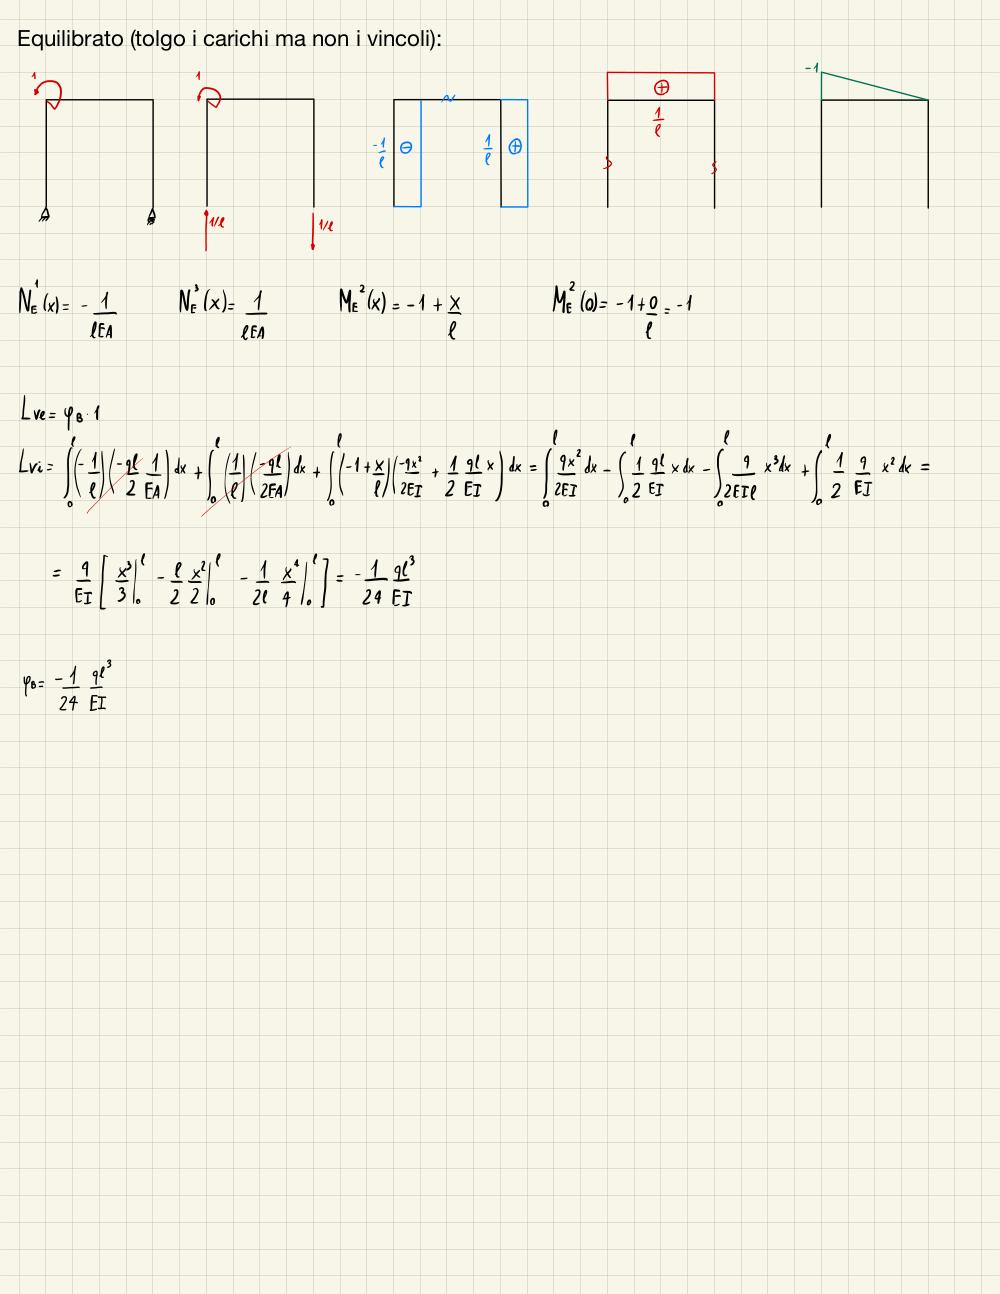 Equilibrato (tolgo i carichi ma non i vincoli):
1 1 -1/ℓ ⊖ 1/ℓ ⊕ ⊕ 1/ℓ -1
1/ℓ 1/ℓ
N_E^1(x) = - 1/(ℓEA) N_E^3(x) = 1/(ℓEA) M_E^2(x) = -1 + x/ℓ M_E^2(0) = -1 + 0/ℓ = -1
Lve = φ_B · 1
Lvi = ∫_0^ℓ (-1/ℓ)(-qℓ/2 1/EA) dx + ∫_0^ℓ (1/ℓ)(-qℓ/2EA) dx + ∫_0^ℓ (-1 + x/ℓ)(-qx²/2EI + 1/2 qℓ/EI x) dx = ∫_0^ℓ qx²/2EI dx - ∫_0^ℓ 1/2 qℓ/EI x dx - ∫_0^ℓ q/2EIℓ x³ dx + ∫_0^ℓ 1/2 q/EI x² dx =
= q/EI [ x³/3 |_0^ℓ - ℓ/2 x²/2 |_0^ℓ - 1/2ℓ x⁴/4 |_0^ℓ ] = -1/24 qℓ³/EI
φ_B = -1/24 qℓ³/EI